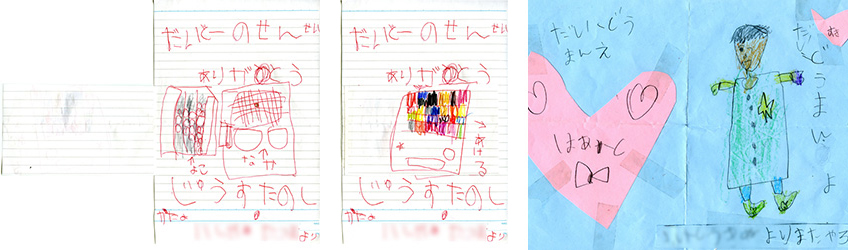 だいどーのせんせい
ありがとう
なか
よこ
じゅうすたのし
かたぬ
より
だいどーのせんせい
ありがとう
あける
じゅうすたのし
かたぬ
より
だいどう
まんえ
はあーと
だいどうまん
よ
よりまたやろ